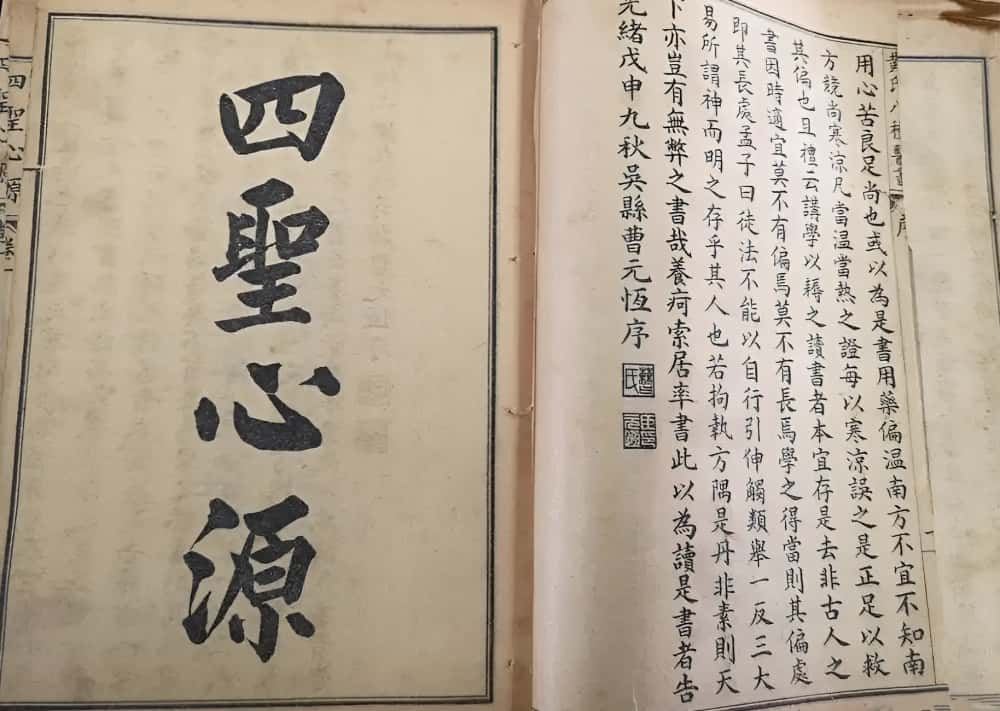 黃氏八種醫書 序
用心苦良足尚也或以為是書用藥偏溫南方不宜不知南
方競尚寒涼凡當溫當熱之證每以寒涼誤之是正足以救
其偏也且禮云講學以耨之讀書者本宜存是去非古人之
書因時適宜莫不有偏焉莫不有長焉學之得當則其偏處
即其長處孟子曰徒法不能以自行引伸觸類舉一反三大
易所謂神而明之存乎其人也若拘執方隅是丹非素則天
下亦豈有無弊之書哉養疴索居率書此以為讀是書者告
光緒戊申九秋吳縣曹元恆序
四聖心源
四聖心源